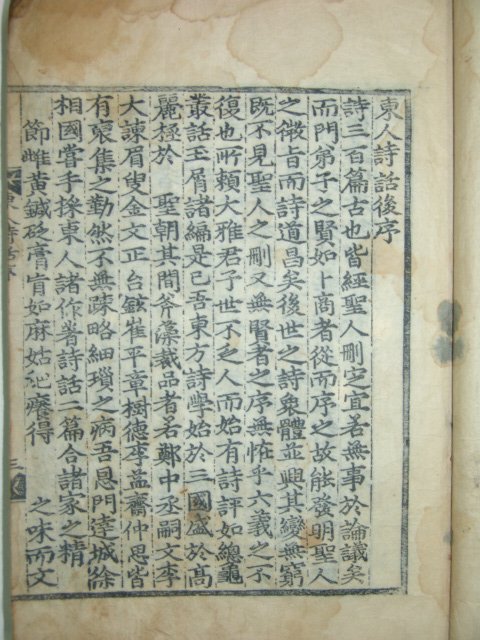 東人詩話後序
詩三百篇古也皆經聖人刪定宜若無事於論議矣
而門弟子之賢如卜商者從而序之故能發明聖人
之微旨而詩道昌矣後世之詩衆體並興其變無窮
旣不見聖人之刪又無賢者之序無恠乎六義之不
復也所賴大雅君子世不乏人而始有詩評如總龜
叢話玉屑諸編是已吾東方詩學始於三國盛於高
麗極於 聖朝其間斧藻裁品者若鄭中丞嗣文李
大諫眉叟金文正台鉉崔平章樹德李益齋仲思皆
有裒集之勤然不無疎略細瑣之病吾恩門達城徐
相國嘗手採東人諸作著詩話二篇合諸家之精
節雌黃鍼砭膏肓如麻姑爬癢得 之味而文